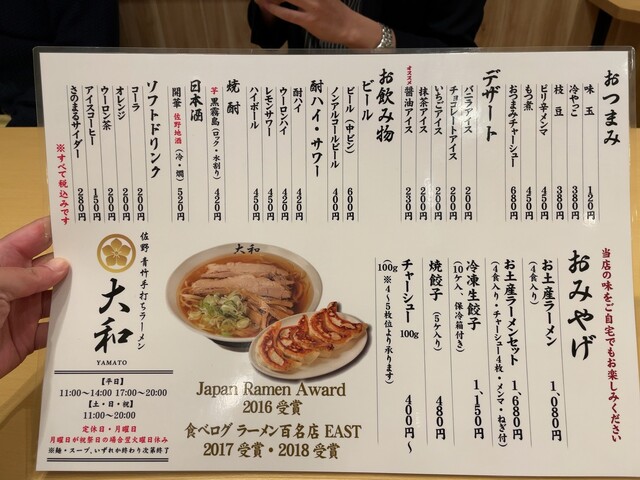 おつまみ
味玉 120円
枝豆 380円
冷やっこ 380円
ピリ辛メンマ 450円
もつ煮 450円
おつまみチャーシュー 680円
デザート
バニラアイス 200円
チョコレートアイス 200円
いちごアイス 200円
抹茶アイス 200円
オススメ 醤油アイス 230円
お飲み物
ビール
ビール(中ビン) 600円
ノンアルコールビール 400円
酎ハイ・サワー
酎ハイ 420円
ウーロンハイ 420円
レモンサワー 450円
ハイボール 450円
焼酎
芋 黒霧島(ロック・水割り) 420円
日本酒
開華 佐野地酒(冷・燗) 520円
ソフトドリンク
コーラ 200円
オレンジ 200円
ウーロン茶 200円
アイスコーヒー 150円
さのまるサイダー 280円
※すべて税込みです
当店の味をご自宅でもお楽しみください
おみやげ
お土産ラーメン 1,080円
(4食入り)
お土産ラーメンセット 1,680円
(4食入り・チャーシュー4枚・メンマ・ねぎ付)
冷凍生餃子 1,150円
(10ケ入り、保冷箱付き)
焼餃子 (5ケ入り) 480円
チャーシュー 100g 400円〜
(100g ※4〜5枚位より承ります)
大和
佐野 青竹手打ちラーメン
大和
YAMATO
【平日】
11:00〜14:00 17:00〜20:00
【土・日・祝】
11:00〜20:00
定休日・月曜日
月曜日が祝祭日の場合翌火曜日休み
※麺・スープ、いずれか終わり次第終了
Japan Ramen Award
2016 受賞
食べログ ラーメン百名店 EAST
2017 受賞・2018 受賞